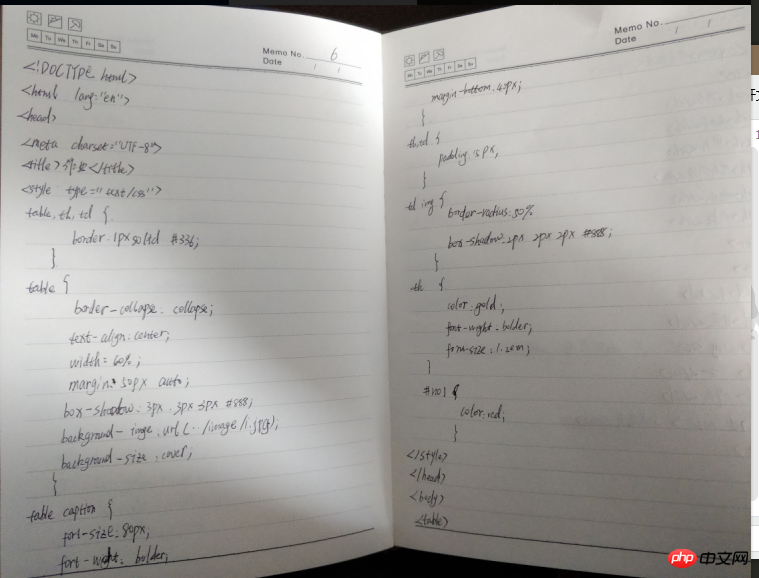 Mo Tu We Th Fr Sa Su
Memo No. 6
Date / /
<!DOCTYPE html>
<html lang="en">
<head>
<meta charset="UTF-8">
<title></title>
<style type="text/css">
table, th, td {
border: 1px solid #336;
}
table {
border-collapse: collapse;
text-align: center;
width= 60%;
margin: 50px auto;
box-shadow: 3px 3px 3px #888;
background-image: url(../image/1.jpg);
background-size: cover;
}
table caption {
font-size: 80px;
font-wight: bolder;
Memo No.
Date / /
Mo Tu We Th Fr Sa Su
margin-bottom: 40px;
}
th,td {
padding: 15px;
}
td img {
border-radius: 50%
box-shadow: 2px 2px 2px #888;
}
th {
color: gold;
font-wight: bolder;
font-size: 1.20em;
}
{
color: red;
}
</style>
</head>
<body>
<table>
php 中文网